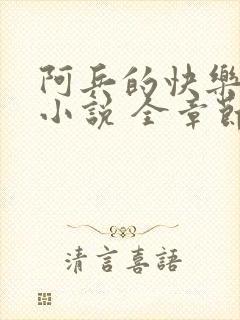 阿兵的快樂
小說 全章節
清言喜語